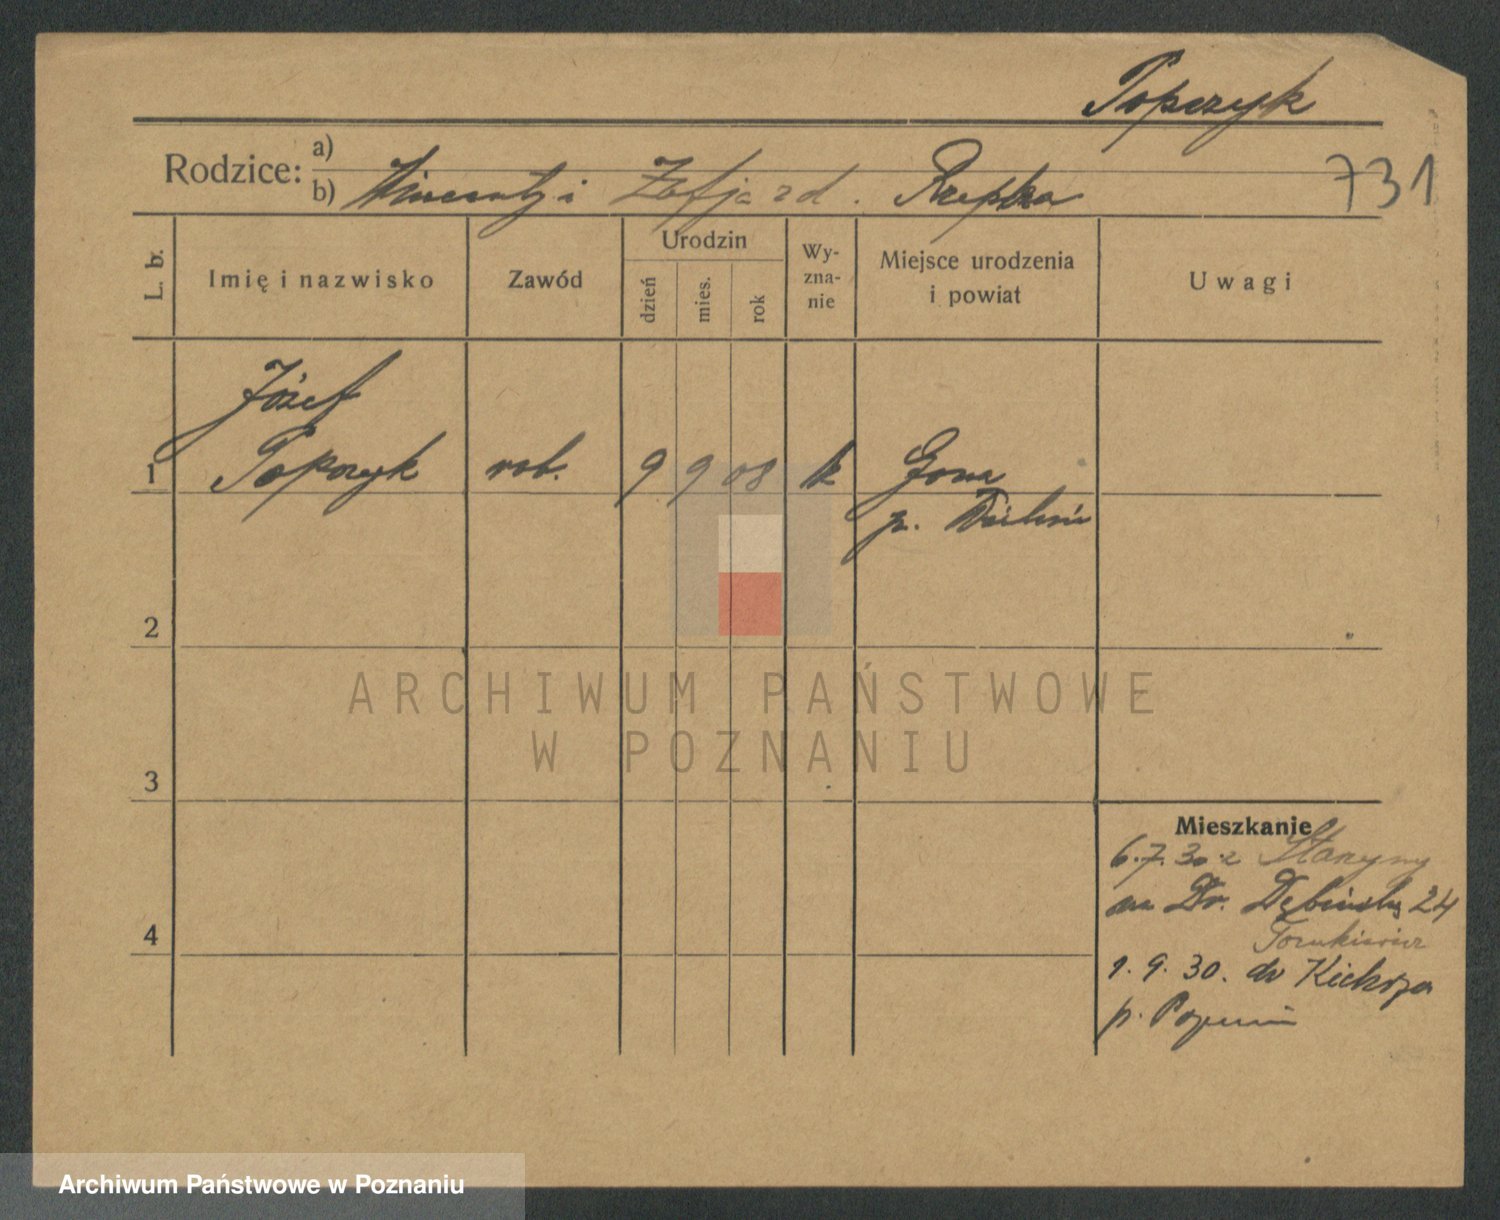 Popczyk
Rodzice: a)
b) Wincenty i Zofja zd. Rzepka
731
L. b.
Imię i nazwisko
Zawód
Urodzin
dzień
mies.
rok
Wy-
zna-
nie
Miejsce urodzenia
i powiat
Uwagi
Józef
1 Popczyk rob. 9 9 08 k Gona
p. Wieluń
2
3
4
Mieszkanie
6.7.30 z
na Dr. Dębińską 24
1.9.30. do Kiekrza
p. Poznań
ARCHIWUM PAŃSTWOWE
W POZNANIU
Archiwum Państwowe w Poznaniu